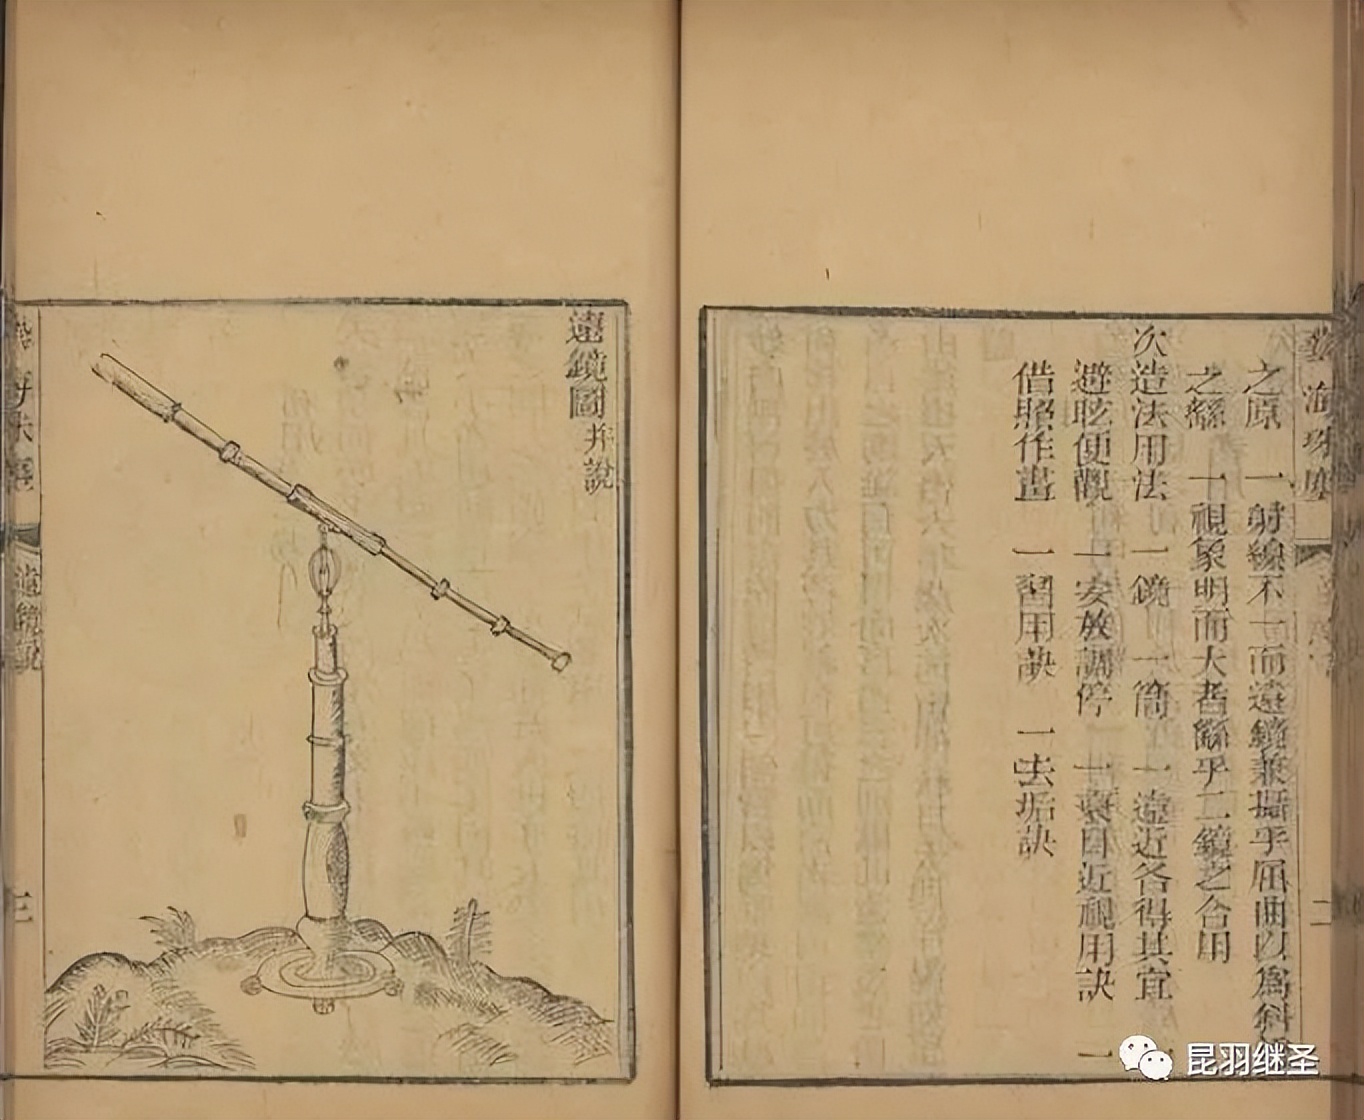 藝海珠塵
二
之原 一射線不一而遠鏡兼攝乎屈曲以爲斜
之繇 一視象明而大者繇乎二鏡之合用
次造法用法 一鏡 一筒 一遠近各得其宜 一
避眩便觀 一安放調停 一衰目近視用訣 一
借照作畫 一習用訣 一去垢訣
遠鏡圖并說
海珠塵 遠鏡說 三
昆羽继圣